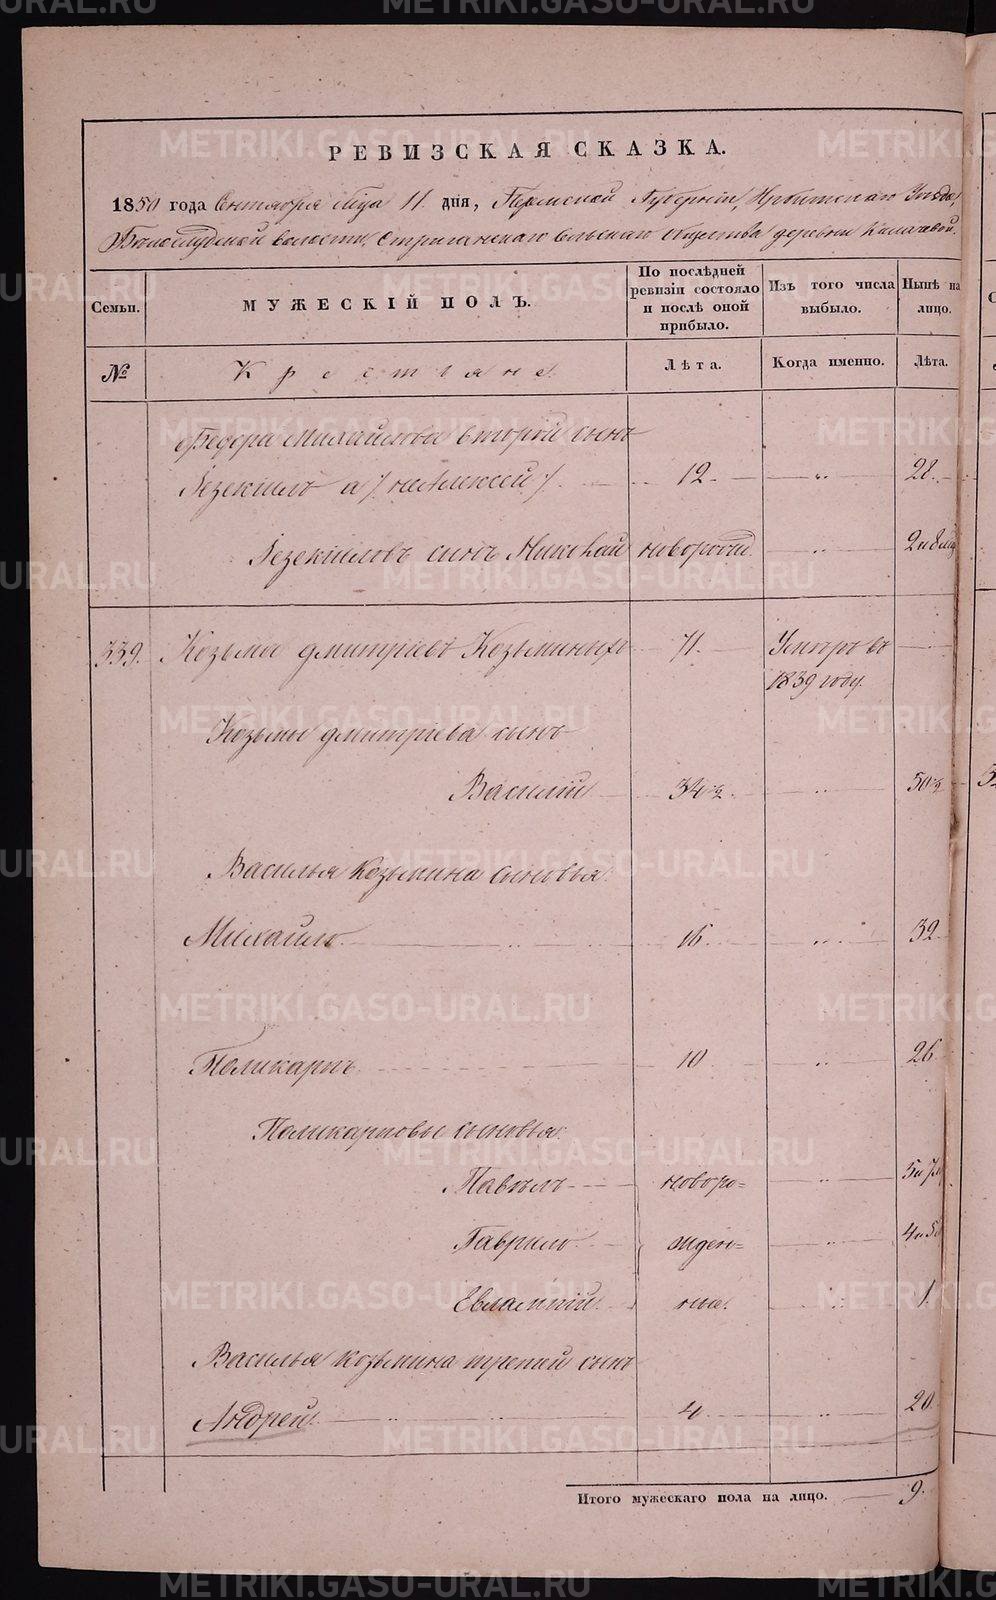 РЕВИЗСКАЯ СКАЗКА.
1850 года Сентября м-ца 11 дня, Пермской Губернии, Ирбитскаго Уѣзда,
Белослудской волости, Стриганскаго сельскаго общества деревни Калачевой.
Семьи. МУЖЕСКІЙ ПОЛЪ. По послѣдней ревизіи состояло и послѣ оной прибыло. Изъ того числа выбыло. Нынѣ на лицо.
№ Крестьяне Лѣта. Когда именно. Лѣта.
Федора Михайлова второй сынъ
Іезекіилъ а /: не Алексей :/ 12. 28.
Іезекіиловъ сынъ Николай новорожд. 2 и 8 мѣ
339. Козьма Дмитріевъ Козьминыхъ 71. Умеръ въ
1839 году.
Козьмы Дмитріева сынъ
Василій 34½. 50½
Василья Козьмина сыновья:
Михайло 16. 32.
Поликарпъ 10 26.
Поликарповы сыновья:
Павелъ новоро= 5 и 7 м
Гаврило жден= 4 и 5
Евлампій ные. 1.
Василья Козьмина третій сынъ
Андрей. 4. 20.
Итого мужескаго пола на лицо. 9.
METRIKI.GASO-URAL.RU